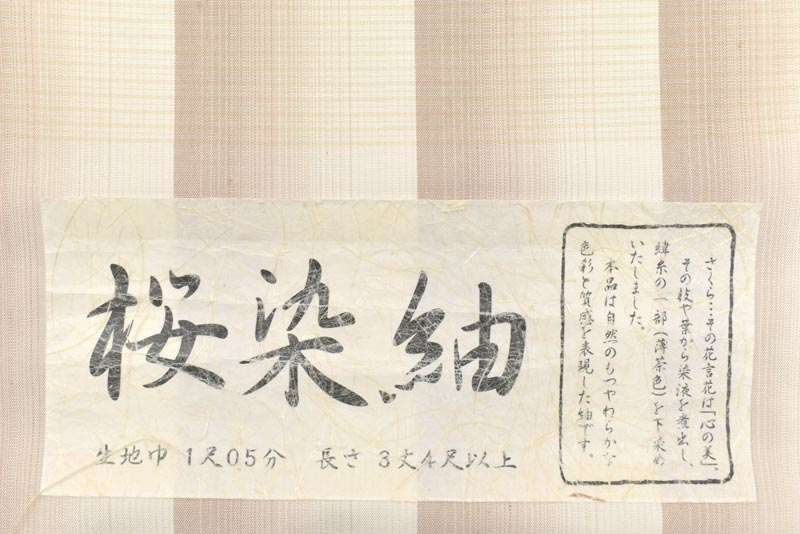 桜染紬
生地巾 1尺05分 長さ 3丈4尺以上
さくら…その花言花は「心の美」。
その枝や葉から染液を煮出し、
緯糸の一部(薄茶色)を下染め
いたしました。
本品は自然のもつやわらかな
色彩と質感を表現した紬です。